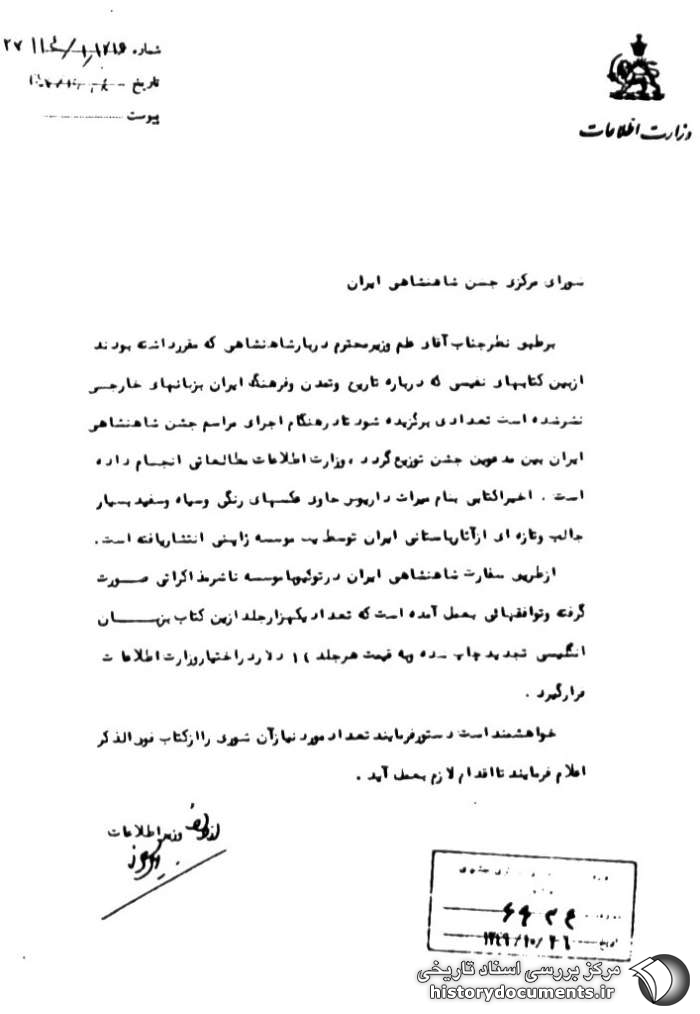 وزارت اطلاعات
شماره
تاریخ
پیوست
شورای مرکزی جشن شاهنشاهی ایران
برطبق نظرجناب آقای علم وزیرمحترم دربارشاهنشاهی که مقررداشته بودند
ازبین کتابهای نفیسی که درباره تاریخ وتمدن وفرهنگ ایران بزبانهای خارجی
نشرشده است تعدادی برگزیده شود تادرهنگام اجرای مراسم جشن شاهنشاهی
ایران بین مدعوین جشن توزیع گردد ، وزارت اطلاعات مطالعاتی انجام داده
است . اخیراکتابی بنام میراث داریوش حاوی عکسهای رنگی وسیاه وسفید بسیار
جالب وتازه ای ازآثارباستانی ایران توسط یک موسسه ژاپنی انتشاریافته است .
ازطریق سفارت شاهنشاهی ایران درتوکیوباموسسه ناشرمذاکراتی صورت
گرفته وتوافقهائی بعمل آمده است که تعداد یکهزارجلد ازین کتاب بزبان
انگلیسی تجدید چاپ شده وبه قیمت هرجلد دلار دراختیاروزارت اطلاعات
قرارگیرد .
خواهشمند است دستورفرمایند تعداد مورد نیازآن شوری را ازکتاب فوق الذکر
اعلام فرمایند تااقدام لازم بعمل آید .
وزیر اطلاعات
تاریخ ۱۳۴۹/۱۰/۲۶
مرکز بررسی اسناد تاریخی
historydocuments.ir